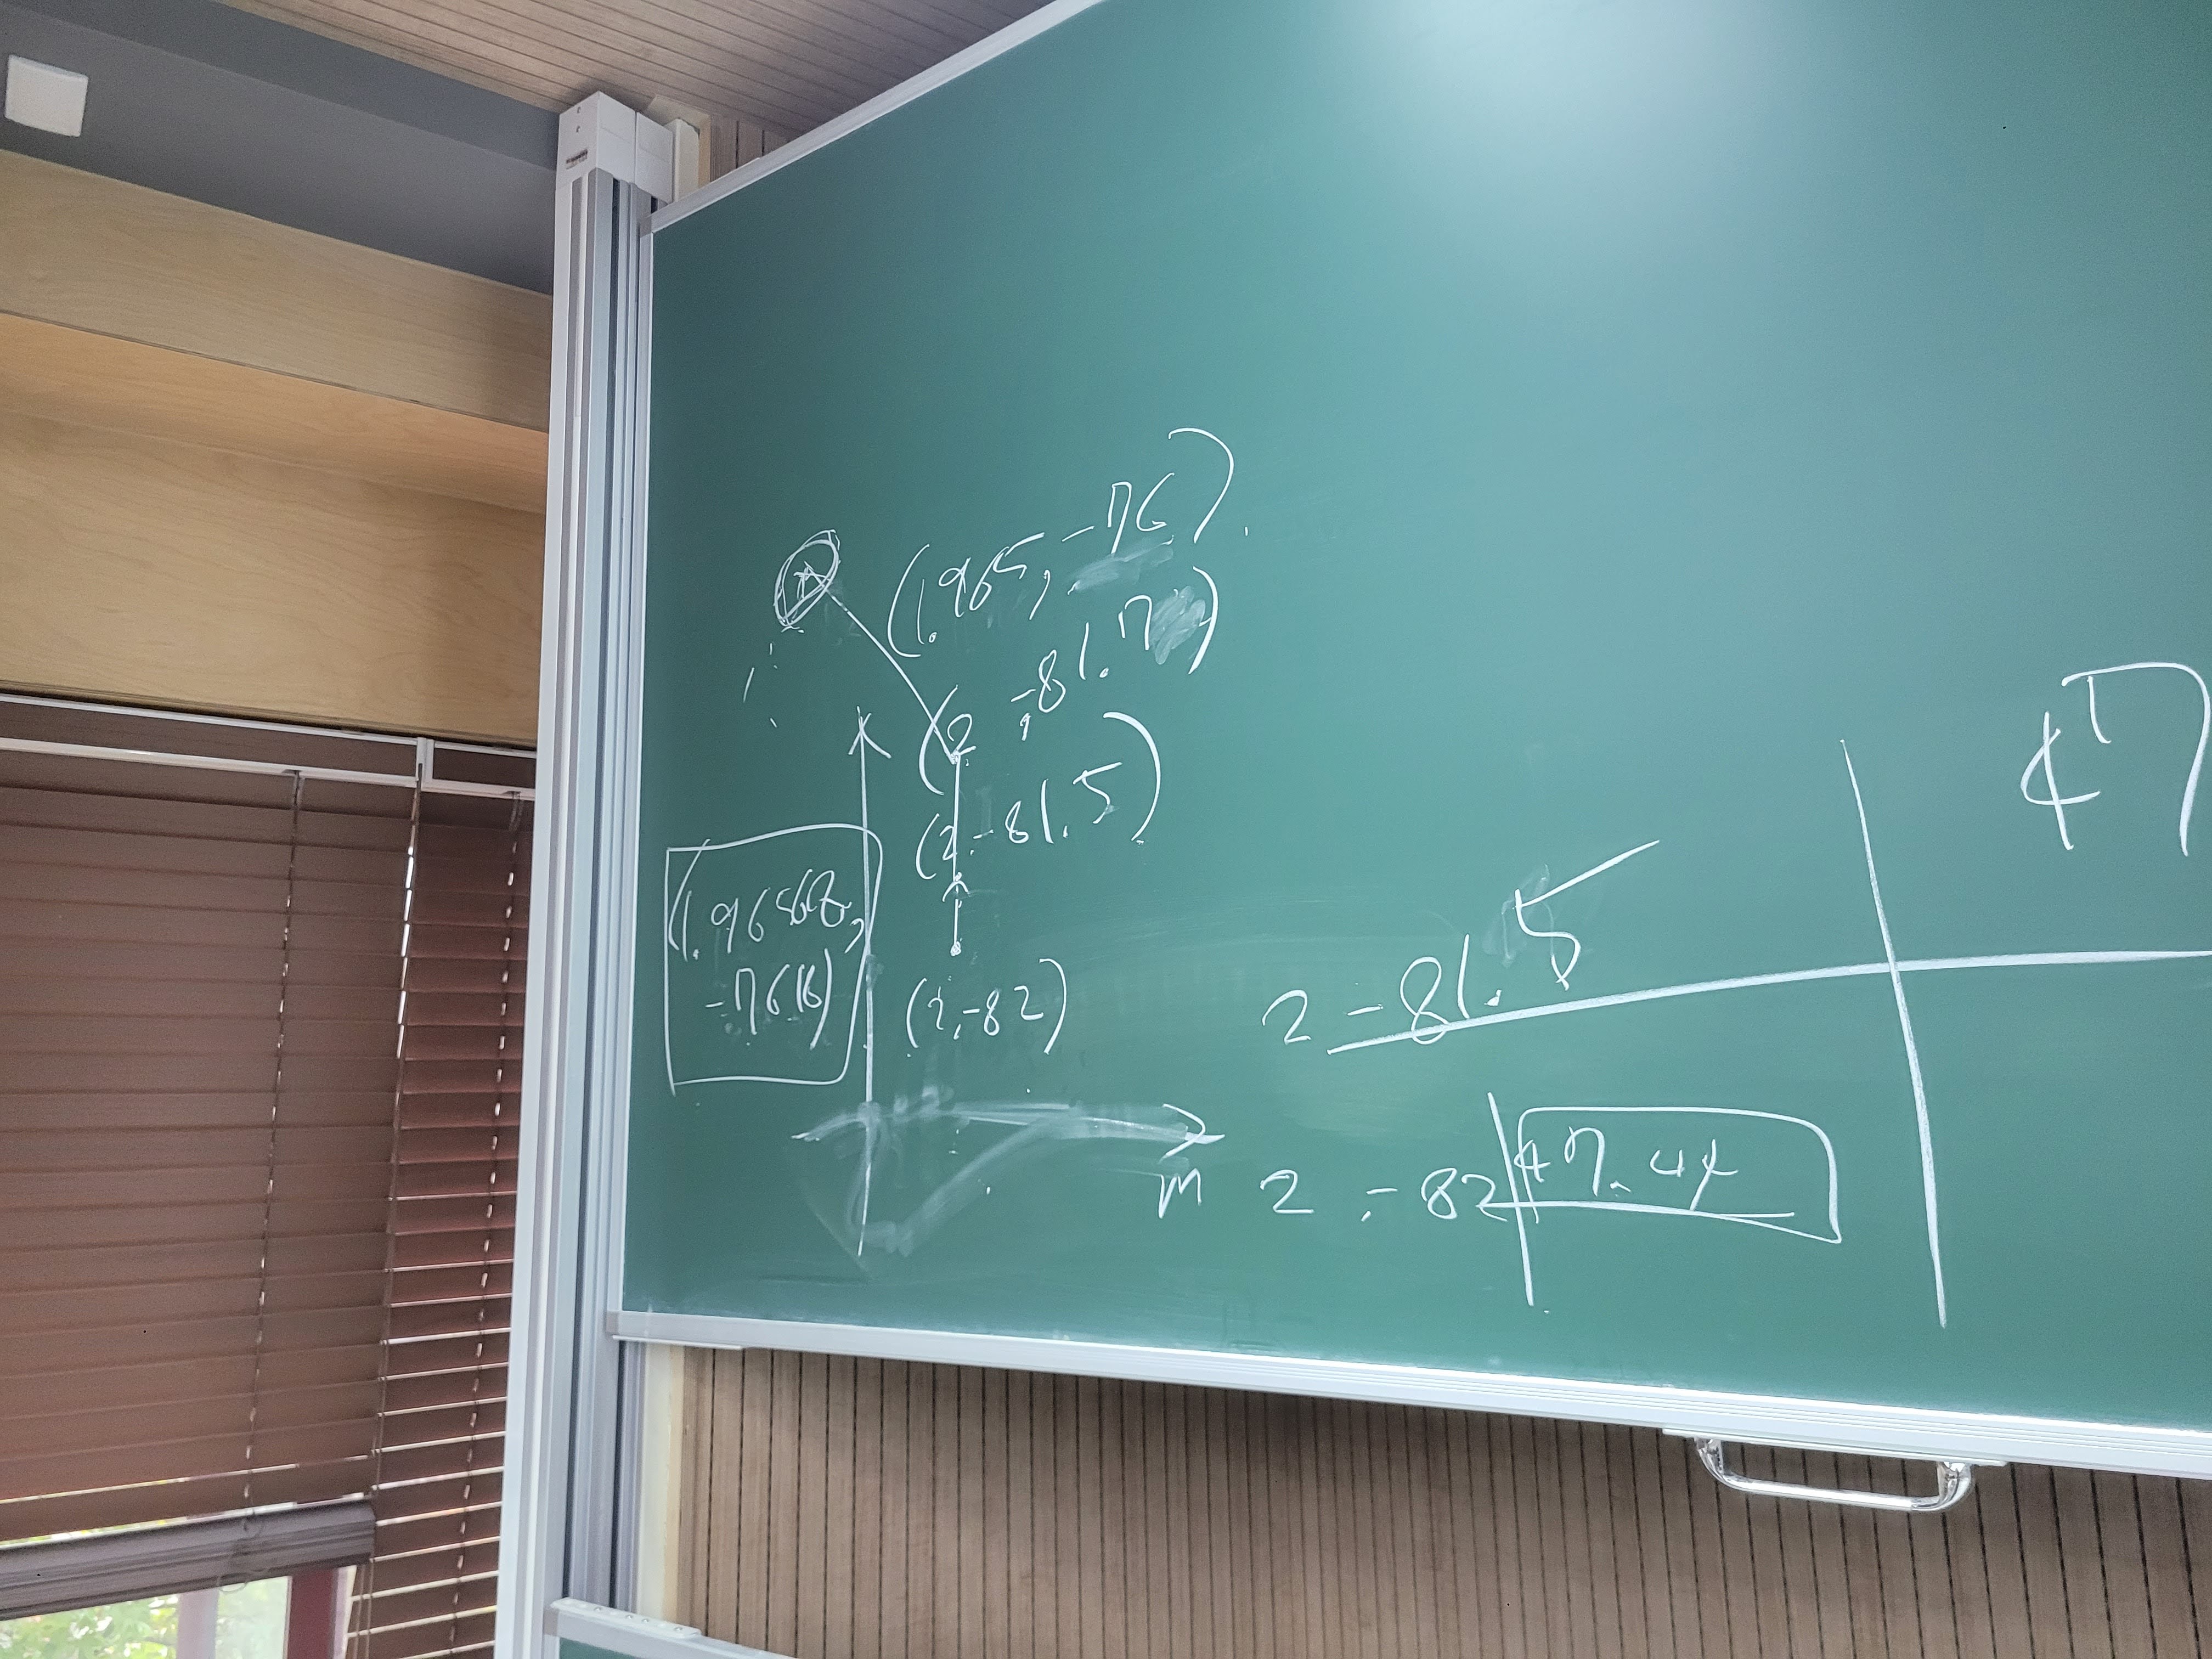 (1.965, -76).
(2, -81.7)
(2, -81.5)
(1.96568,
-76.18)
(2, -82)
2 -81.5
47
m 2 -82 47.44